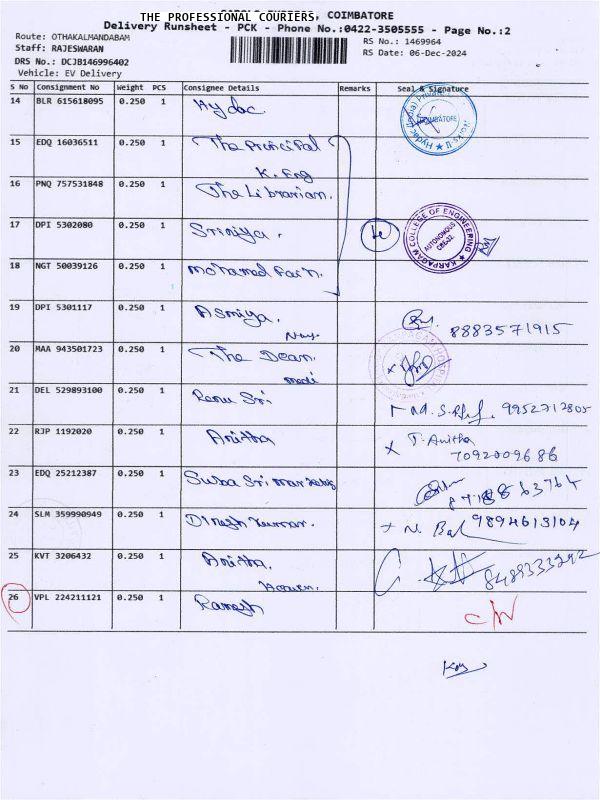 THE PROFESSIONAL COURIERS, COIMBATORE
Delivery Runsheet - PCK - Phone No.:0422-3505555 - Page No.:2
Route: OTHAKALMANDABAM
RS No.: 1469964
Staff: RAJESWARAN
RS Date: 06-Dec-2024
DRS No.: DCJB146996402
Vehicle: EV Delivery
S No Consignment No Weight PCS Consignee Details Remarks Seal & Signature
14 BLR 615618095 0.250 1 Hydac
COIMBATORE
15 EDQ 16036511 0.250 1 The Principal
K. Eng
16 PNQ 757531848 0.250 1 The Librarian.
17 DPI 5302080 0.250 1 Srimiya.
KARPAGAM COLLEGE OF ENGINEERING
AUTONOMOUS
CBE-32
18 NGT 50039126 0.250 1 Mohamed
19 DPI 5301117 0.250 1 Asmiya.
8883571915
20 MAA 943501723 0.250 1 The Dean.
medi
21 DEL 529893100 0.250 1 Renu Sri. 9952712805
22 RJP 1192020 0.250 1 Anitha T. Anitha
7092009686
23 EDQ 25212387 0.250 1 Suba Sri
24 SLM 359990949 0.250 1 Dinesh Kumar. 9894613104
25 KVT 3206432 0.250 1 Anitha. 8489333292
26 VPL 224211121 0.250 1 Ramesh